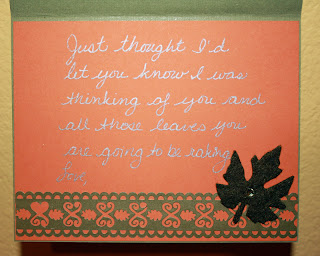 Just thought I'd
let you know I was
thinking of you and
all those leaves you
are going to be raking
Love,